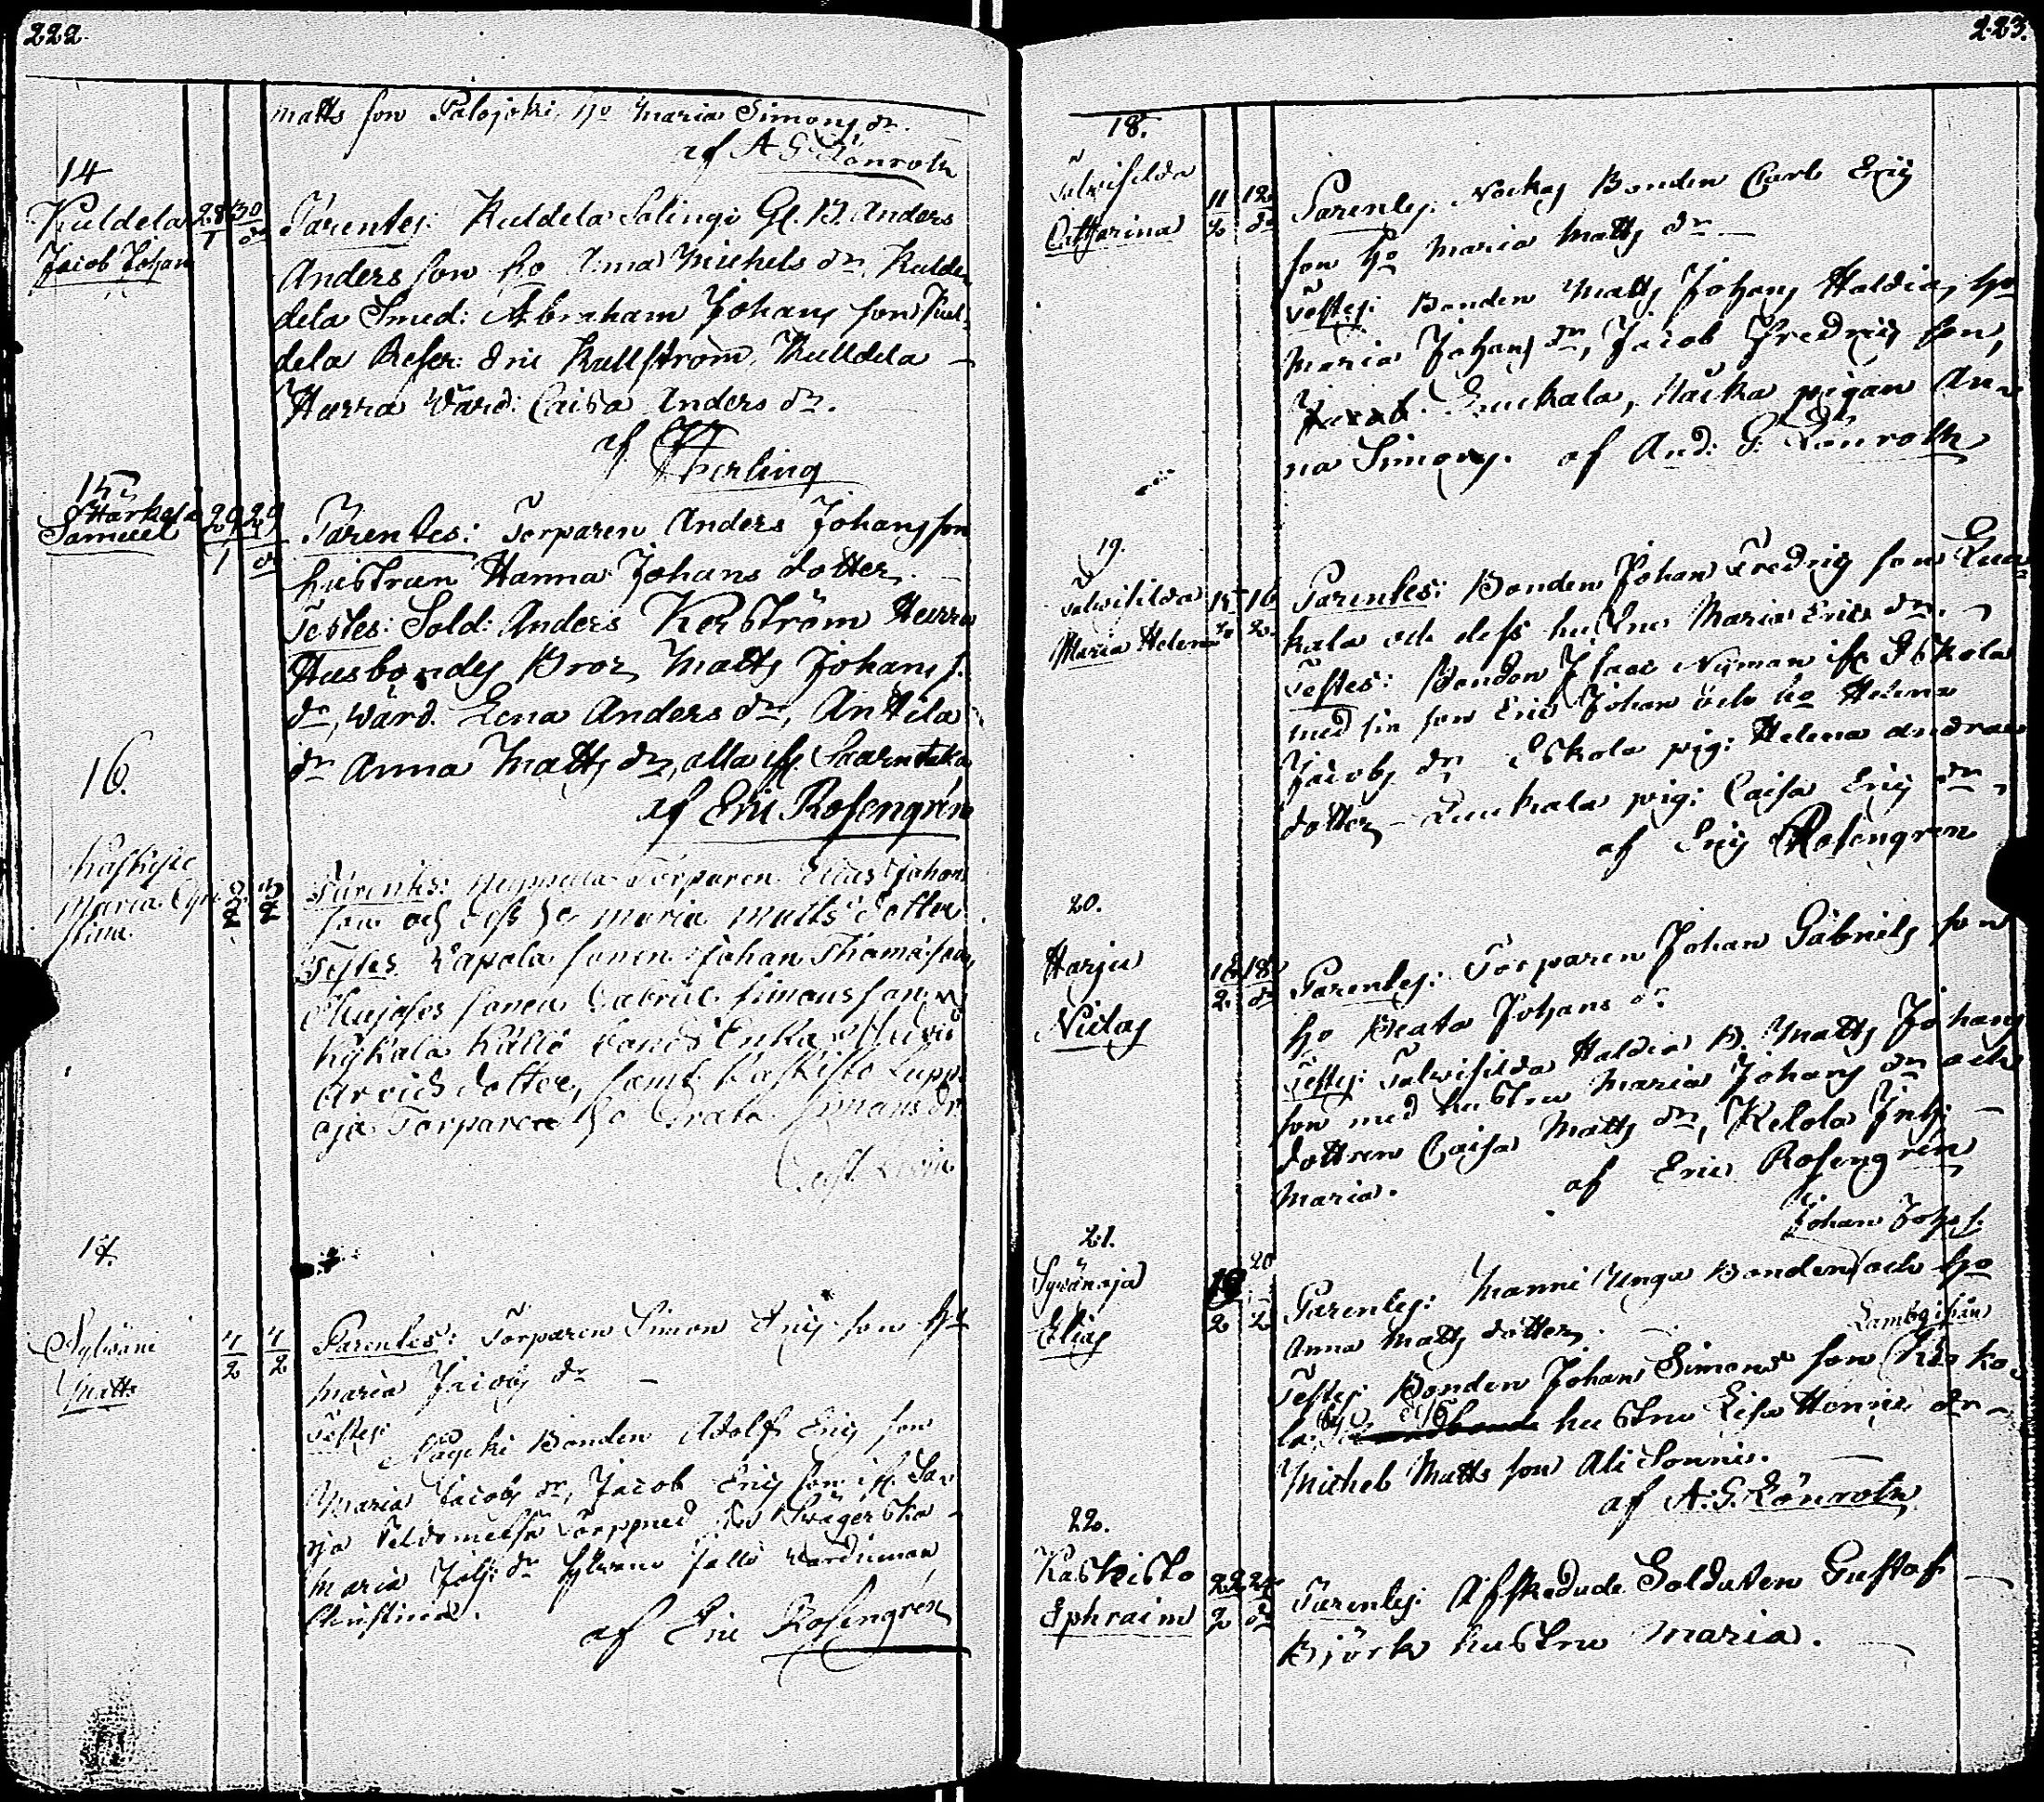 222.
matts son Palojoki, ho Maria Simons dr.
af A G Lönroth
14
Kuldela
Jacob Johan
28/1 30/do
Parentes: Kuldela Salingi Gl. B. Anders
Anders son ho Anna Michels dr, Kulde
dela Smed: Abraham Johans son Kul-
dela Reser: Eric Kullström, Kulldela
Hurra Värd: Caisa Anders dr.
af Therling
15
Härkälä
Samuel
29/1 29/do
Parentes: Torparen Anders Johans son
hustrun Hanna Johans dotter.
Testes: Sold: Anders Kerström Hurra
Husbondes Bror Matts Johans s.
dr, Värd. Lena Anders dr, Anttila
dr Anna Matts dr, alla ifr. Saarentaka
af Eric Rosengren
16.
Kaskiste
Maria Chri
stina.
2/2 3/2
Parentes: Torparen Elias Johans
son och dess ho Maria Matts dotter
Testes Lapola sonen Johan Thomasson,
sonen Gabriel Simonsson,
Kykala Källö Enka
Arvids dotter, samt Kaskisto
oja Torparen ho Beata Simans dr
17.
Sylväni
Matts
4/2 4/2
Parentes: Torparen Simon Erics son ho
Maria Jacobs dr
Testes:
Näycki Bonden Adolf Erics son
Maria Jacobs dr, Jacob Erics son ifr. Sar
Maria Joh: dr
Christina.
af Eric Rosengren
223.
18.
Talvisilda
Catharina
11/2 12/do
Parentes: Nockas Bonden Carl Erics
son ho Maria Matts dr
Testes: Bonden Matts Johans Haldia, ho
Maria Johans dr, Jacob Fredrics son,
Luckala, Nåcka pigan An-
na Simons. af And: G: Lönroth
19.
Talvisilda
Maria Helena
15/2 16/2.
Parentes: Bonden Johan Fredrics son Luc-
kala och dess hustru Maria Erics dr.
Testes: Bonden Isaac Nyman ifr. Eskola
med sin son Eric Johan och ho Helena
Jacobs dr Eskola pig: Helena andrae
dotter Luckala pig: Caisa Erics dr,
af Erics Rosengren
20.
Harju
Niclas
18/2. 18/do
Parentes: Torparen Johan Gabriels son
ho Beata Johans dr
Testes: Talvisilda Haldia B. Matts Johans
son med hustru Maria Johans dr och
dottren Caisa Matts dr, Kelola Inh:
Maria. af Eric Rosengren
21.
Sywänoja
Elias
19/2 20/2
Johan Johs s.
Parentes: Manni Unga Bonden och ho
Anna Matts dotter.
Lambi ifrån
Testes: Bonden Johans Simons son Kosko
la: hustru Lisa Henric dr
Michel Matts son Ali Sonni.
af A: G. Lönroth
22.
Kaskisto
Ephraim
22/2 24/do
Parentes: Afskedade Soldaten Gustaf
Björk hustru Maria.